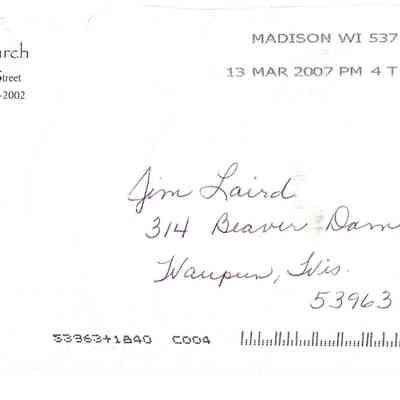 urch
Street
-2002
MADISON WI 537
13 MAR 2007 PM 4 T
Jim Laird
314 Beaver Dam
Waupun, Wis.
53963
53963+1840 C004